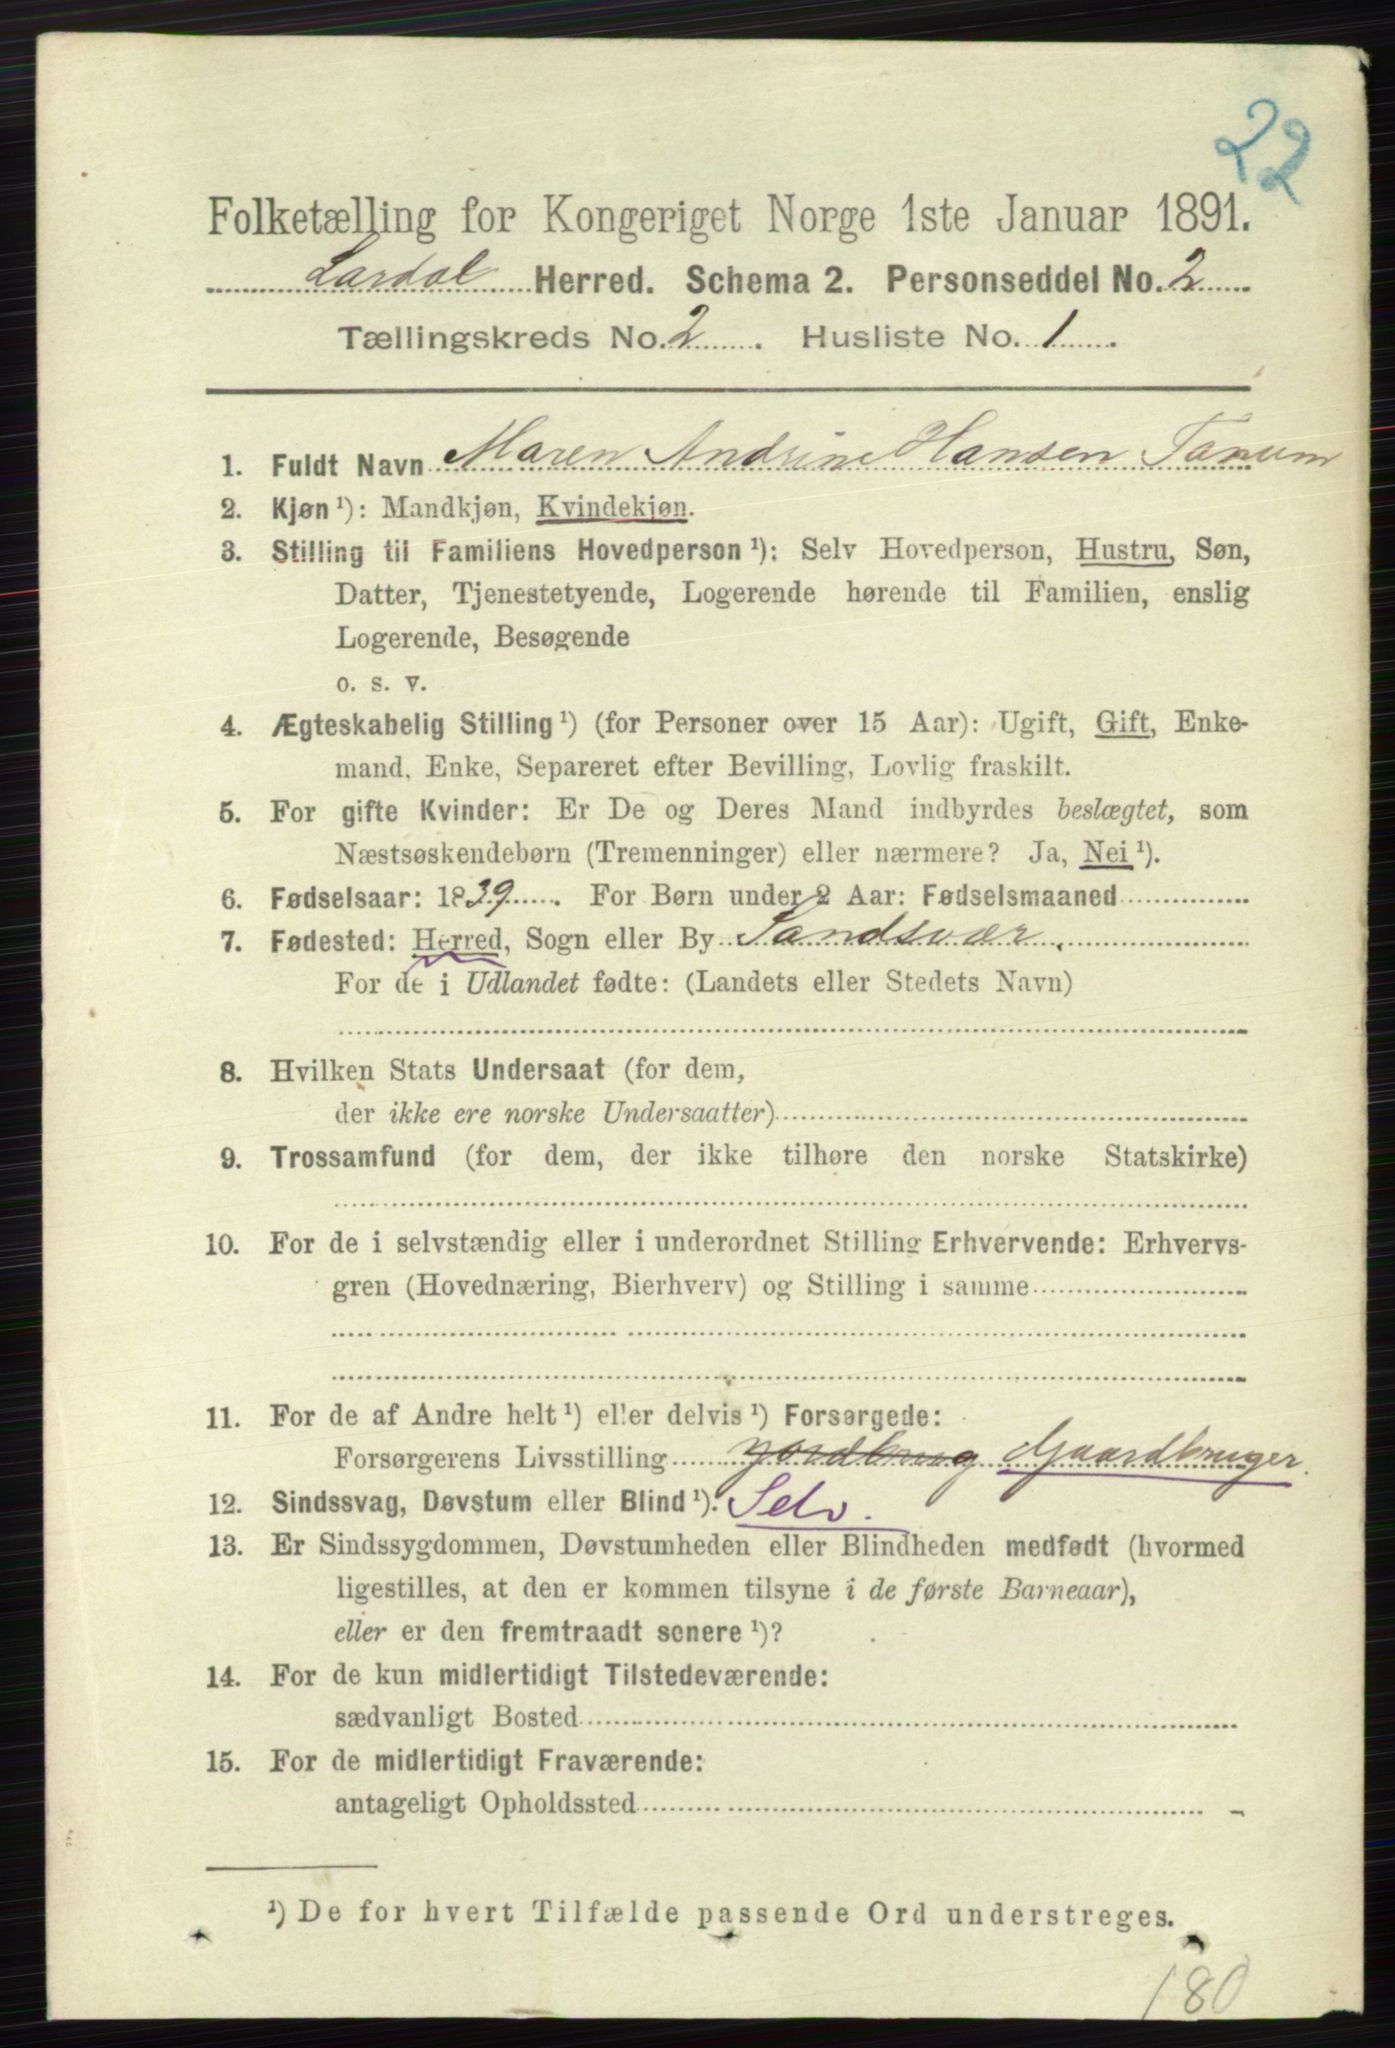 22
Folketælling for Kongeriget Norge 1ste Januar 1891.
Lardal Herred. Schema 2. Personseddel No. 2
Tællingskreds No. 2. Husliste No. 1.
1. Fuldt Navn Maren Andrine Hansen Tanum
2. Kjøn ¹): Mandkjøn, Kvindekjøn.
3. Stilling til Familiens Hovedperson ¹): Selv Hovedperson, Hustru, Søn,
Datter, Tjenestetyende, Logerende hørende til Familien, enslig
Logerende, Besøgende
o. s. v.
4. Ægteskabelig Stilling ¹) (for Personer over 15 Aar): Ugift, Gift, Enke-
mand, Enke, Separeret efter Bevilling, Lovlig fraskilt.
5. For gifte Kvinder: Er De og Deres Mand indbyrdes beslægtet, som
Næstsøskendebørn (Tremenninger) eller nærmere? Ja, Nei ¹).
6. Fødselsaar: 1839. For Børn under 2 Aar: Fødselsmaaned
7. Fødested: Herred, Sogn eller By Sandsvær.
For de i Udlandet fødte: (Landets eller Stedets Navn)
8. Hvilken Stats Undersaat (for dem,
der ikke ere norske Undersaatter)
9. Trossamfund (for dem, der ikke tilhøre den norske Statskirke)
10. For de i selvstændig eller i underordnet Stilling Erhvervende: Erhvervs-
gren (Hovednæring, Bierhverv) og Stilling i samme
11. For de af Andre helt ¹) eller delvis ¹) Forsørgede:
Forsørgerens Livsstilling Jordbrug Gaardbruger.
12. Sindssvag, Døvstum eller Blind ¹). Selv.
13. Er Sindssygdommen, Døvstumheden eller Blindheden medfødt (hvormed
ligestilles, at den er kommen tilsyne i de første Barneaar),
eller er den fremtraadt senere ¹)?
14. For de kun midlertidigt Tilstedeværende:
sædvanligt Bosted
15. For de midlertidigt Fraværende:
antageligt Opholdssted
¹) De for hvert Tilfælde passende Ord understreges.
180